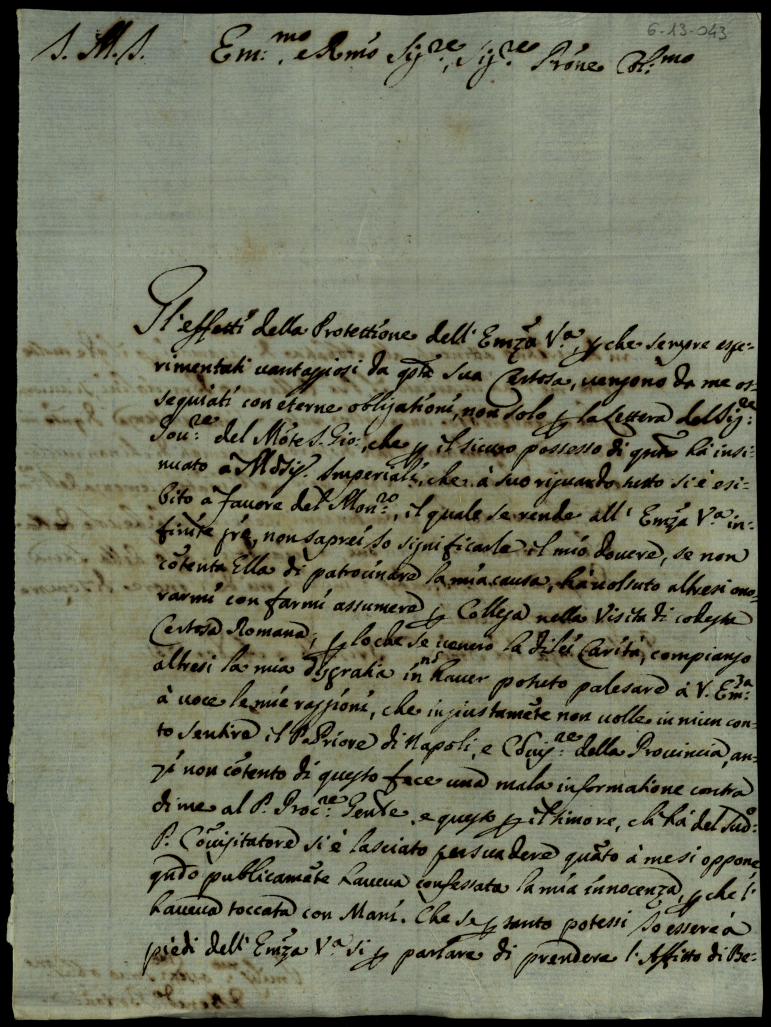 6-13-043
J. M. J. Em:mo, e Rmo Sig:re, Sig:re Prone Col:mo
Gl'effetti della Protettione dell' Emza Va, p che sempre espe-
rimentati vantaggiosi da qsta sua Certosa, vengono da me os-
sequiati con eterne obligationi, non solo p la Lettera del Sig:re
Gov:re del Mote S. Gio:, che p il sicuro possesso di qsto hà insi-
nuato à Mosig.r Imperiali, che à suo riguardo tutto si è esi-
bito à favore del Mon:ro, il quale se rende all' Emza Va in-
finite gre, non saprei Io significarle il mio dovere, se non
cotenta Ella di patrocinare la mia causa, hà voluto altresi ono-
rarmi con farmi assumere p Collega nella Visita di codesta
Certosa Romana, p lo che se venero la di lei Carità, compiango
altresi la mia disgratia in no haver potuto palesare à V. Em:za
à voce le mie raggioni, che ingiustamete non volle in niun con-
to sentire il Pe Priore di Napoli, e Covis:re della Provincia, an-
zi non cotento di questo fece una mala informatione contra
di me al P. Proc:re Genle, e questo p il timore, ch'hà del sudo:
P. Covisitatore si è lasciato persuadere quato à me si oppone
qndo publicamete haveva confessata la mia innocenza, p che l'
haveva toccata con Mani. Che se p tanto potessi Io essere à
piedi dell' Emza Va si p parlare di prendere l'Affitto di Be-